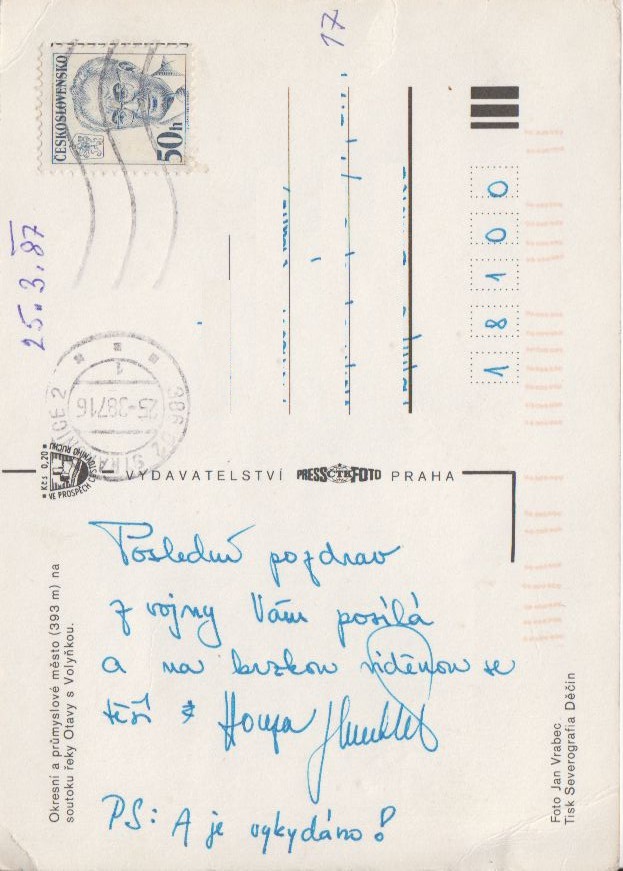 17
ČESKOSLOVENSKO
50h
25.3.87
386 02 STRAKONICE 2
25.-3.8716
1
Kčs 0,20
VE PROSPĚCH CESTOVNÍHO RUCHU
18100
VYDAVATELSTVÍ PRESS ČTK FOTO PRAHA
Poslední pozdrav
z vojny Vám posílá
a na brzkou viděnou se
těší Honza
PS: A je vykydáno!
Okresní a průmyslové město (393 m) na
soutoku řeky Otavy s Volyňkou.
Foto Jan Vrabec
Tisk Severografia Děčín